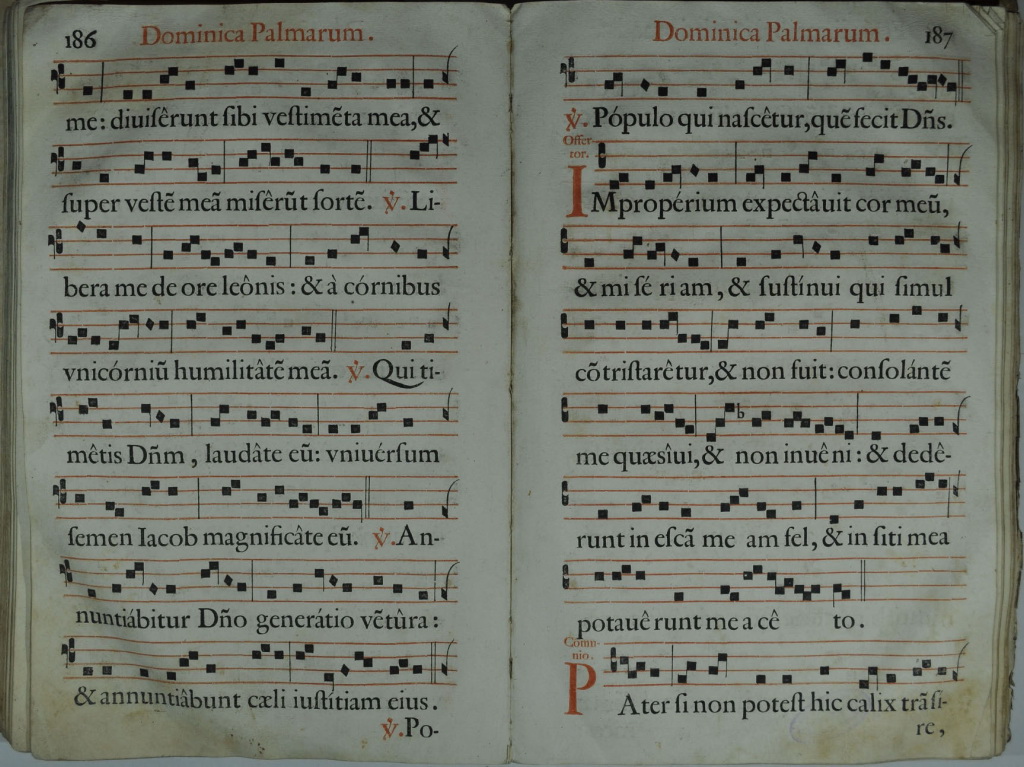 186 Dominica Palmarum.
me: diuisêrunt sibi vestimẽta mea, &
super vestẽ meã misêrũt sortẽ. ℣. Li-
bera me de ore leônis: & à córnibus
vnicórniũ humilitâtẽ meã. ℣. Qui ti-
mêtis Dñm, laudâte eũ: vniuérsum
semen Iacob magnificâte eũ. ℣. An-
nuntiábitur Dño generátio vẽtûra:
& annuntiâbunt cæli iustítiam eius.
℣. Po-
Dominica Palmarum. 187
℣. Pópulo qui nascêtur, quẽ fecit Dñs.
Offer-
tor.
IMpropérium expectâuit cor meũ,
& mi sé ri am, & sustínui qui simul
cõtristarêtur, & non fuit: consolántẽ
me quæsîui, & non inuêni: & dedê-
runt in escã me am fel, & in siti mea
potauê runt me a cê to.
Commu-
nio.
PAter si non potest hic calix trãsi-
re,